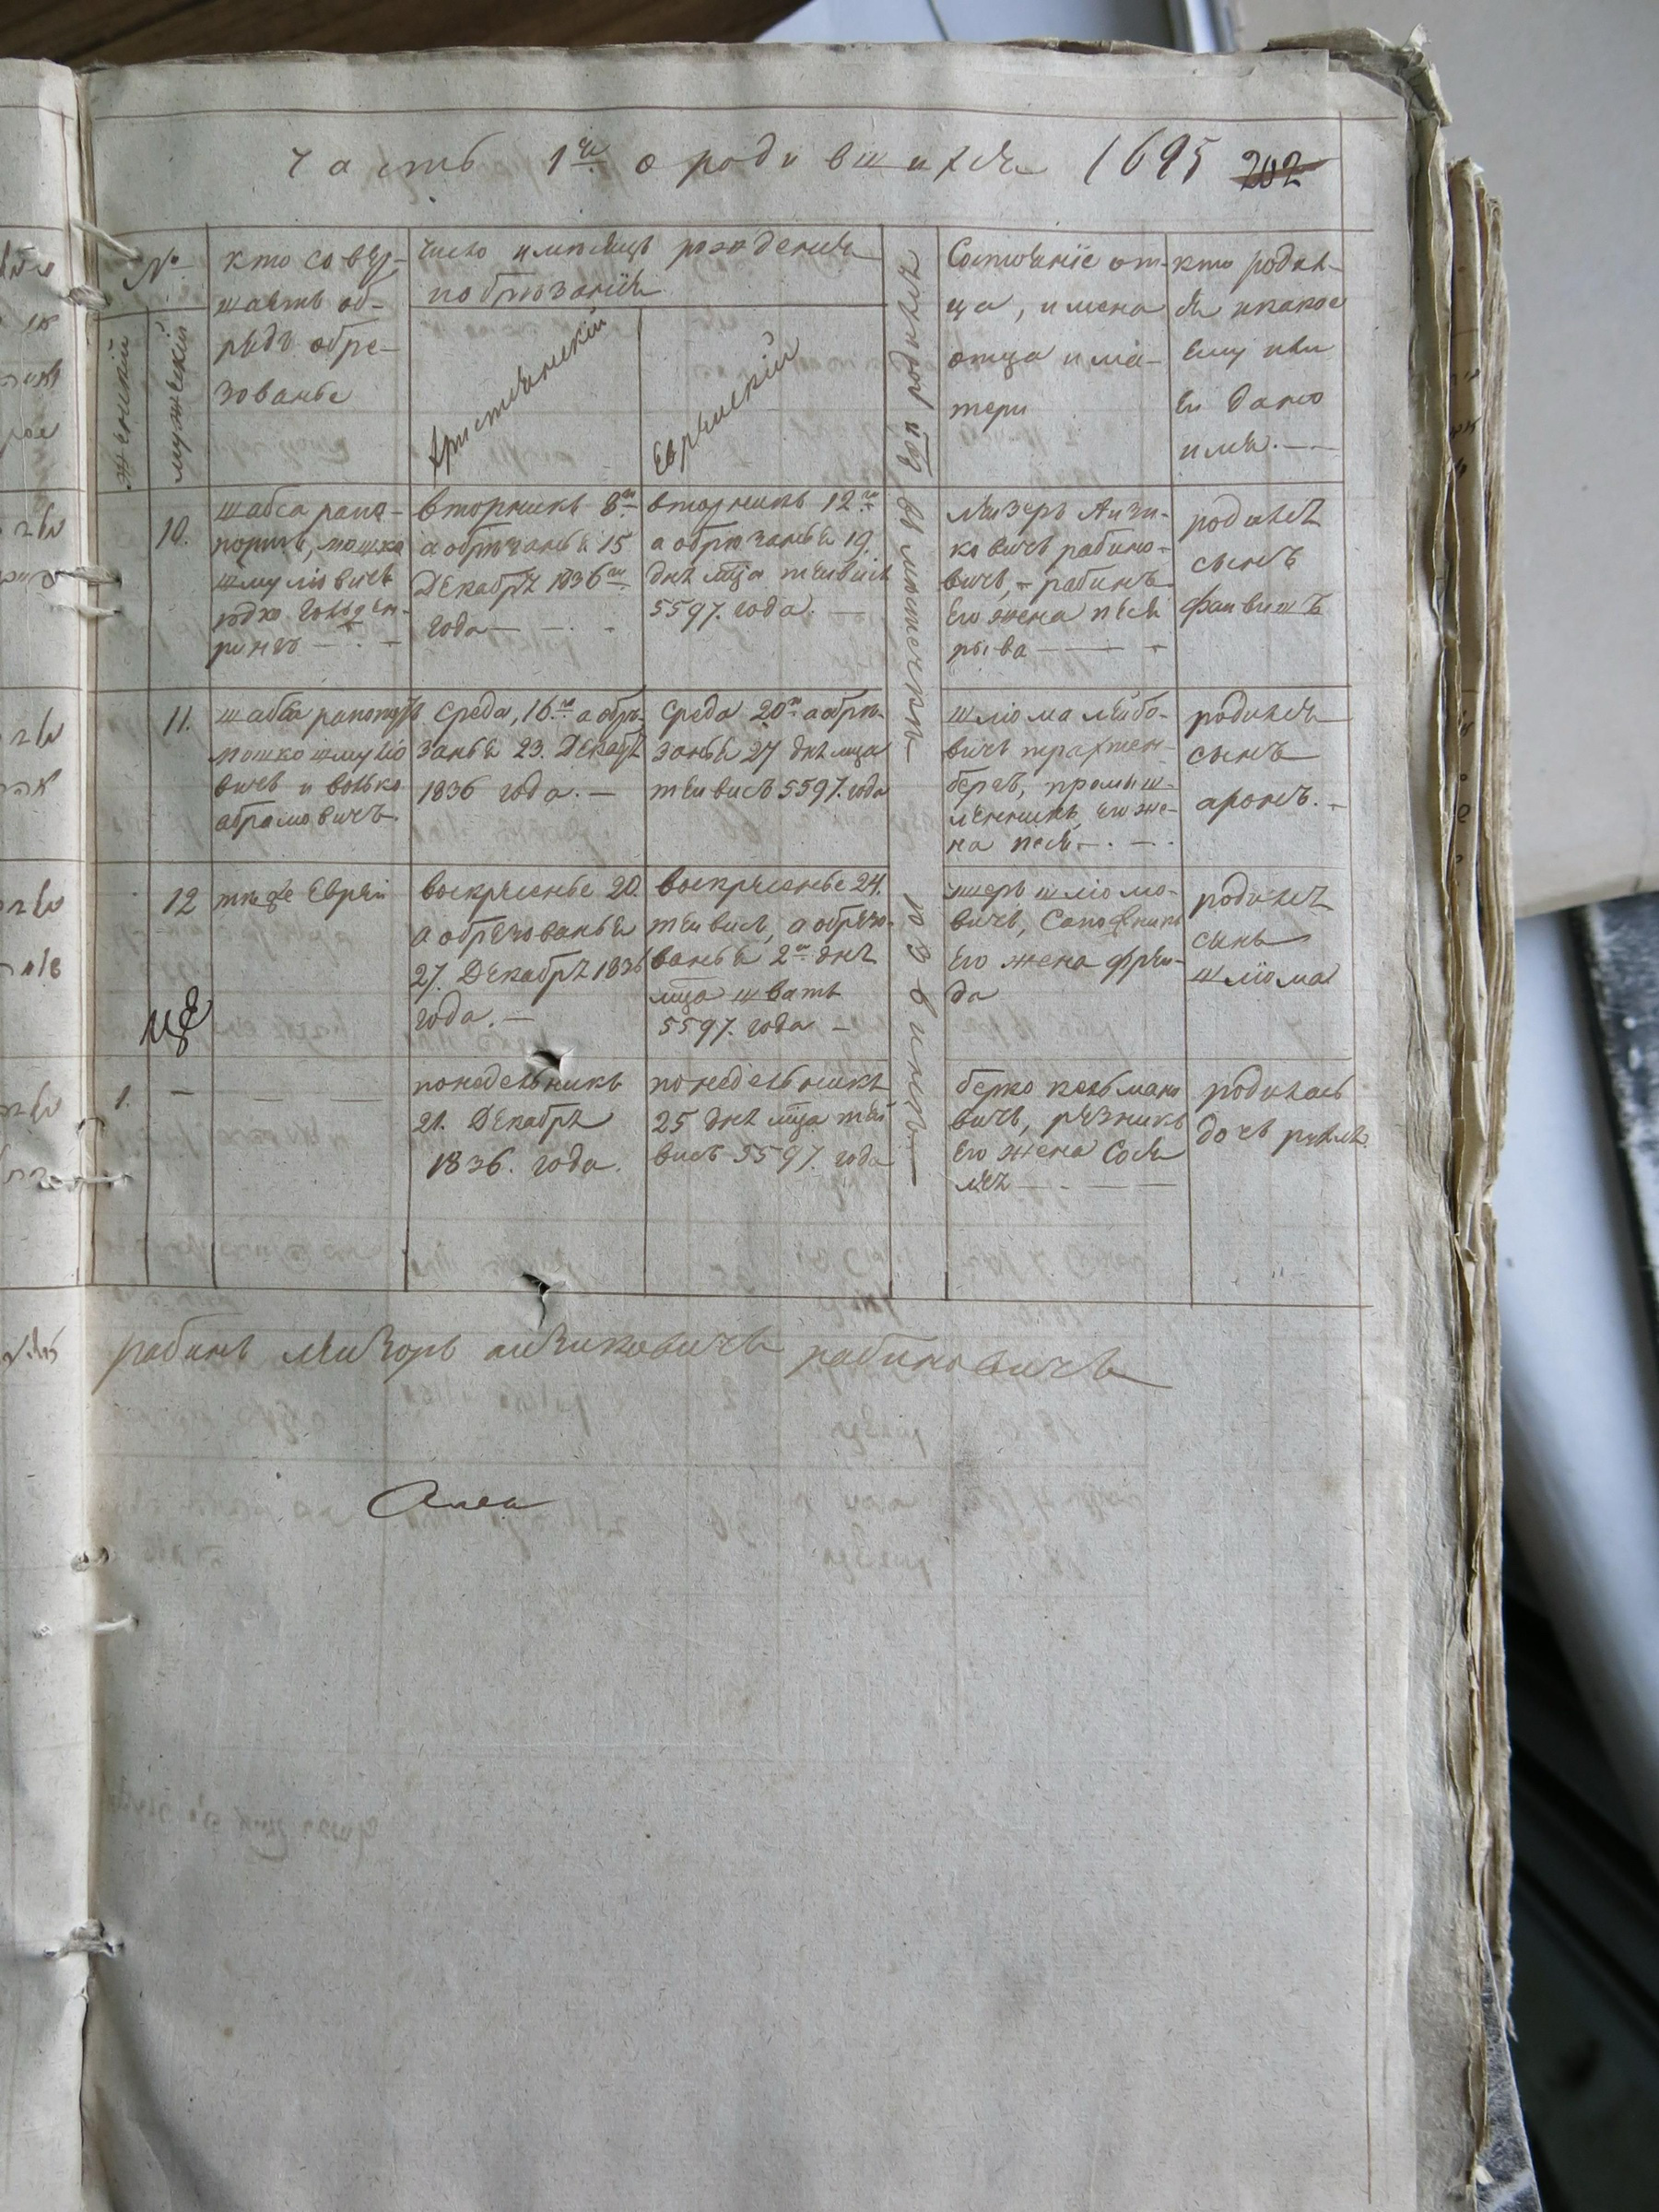 Часть 1ая о родившихся 1695 202
№
женскiй
мужескiй
кто совер-
шаетъ об-
рядъ обре-
зованье
число и месяцъ рожденiя
и обрѣзанiя
христiянскiй
еврейскiй
Где родился
Состоянiе от-
ца, имена
отца и ма-
тери
кто родил-
ся и какое
ему или
ей дано
имя. —
въ местечкѣ
10.
шабса рапа-
портъ, мошка
шмулiовичъ
гольден-
вторникъ 8го
а обрѣзанья 15
Декабря 1836го
года —
вторникъ 12го
а обрѣзанья 19.
дня мца тейвисъ
5597. года. —
Лейзеръ Айзи-
ковичъ рабино-
вичъ, – рабинъ
его жена песя
рыва —
родился
сынъ
файвишъ
11.
шабса рапопортъ
мошко шмулiо
вичъ и волько
абрамовичъ.
Среда, 16го а обрѣ-
занья 23. Декабря
1836 года. —
Среда 20го а обрѣ-
занья 27 дня мца
тейвисъ 5597. года
шлiома лейбо-
вичъ трахтен-
бергъ, промыш-
ленникъ, его же-
на песя —
родился
сынъ
аронъ. –
12
тѣже Евреи
воскресенье 20.
а обрезованья
27. Декабря 1836
года. —
воскресенье 24.
тейвисъ, а обрезо-
ванья 2го дня
мца шватъ
5597. года —
шлiомо-
вичъ, Сапожникъ
его жена фрей-
да
родился
сынъ
шлiома
1.
— — — —
понедельникъ
21. Декабря
1836. года.
понедельникъ
25 дня мца тей
висъ 5597. года
берко кальмано
вичъ, резникъ
его жена Сося
лея — — —
родилась
дочь
рабинъ лейзоръ айзиковичъ рабиновичъ